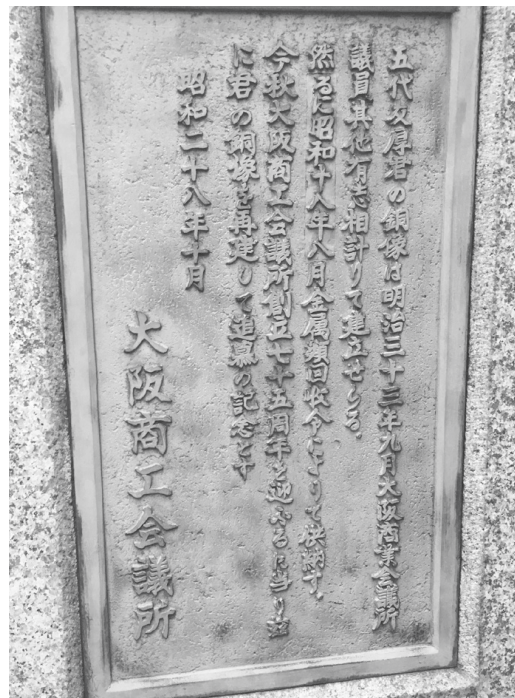 五代友厚君の銅像は明治三十三年九月大阪商業会議所
議員其他有志相計りて建立せしも
然るに昭和十八年八月金属類回收令によりて供納す
今秋大阪商工会議所創立七十五周年を迎ふるに当り茲
に君の銅像を再建して追慕の記念とす
昭和二十八年十月
大阪商工会議所